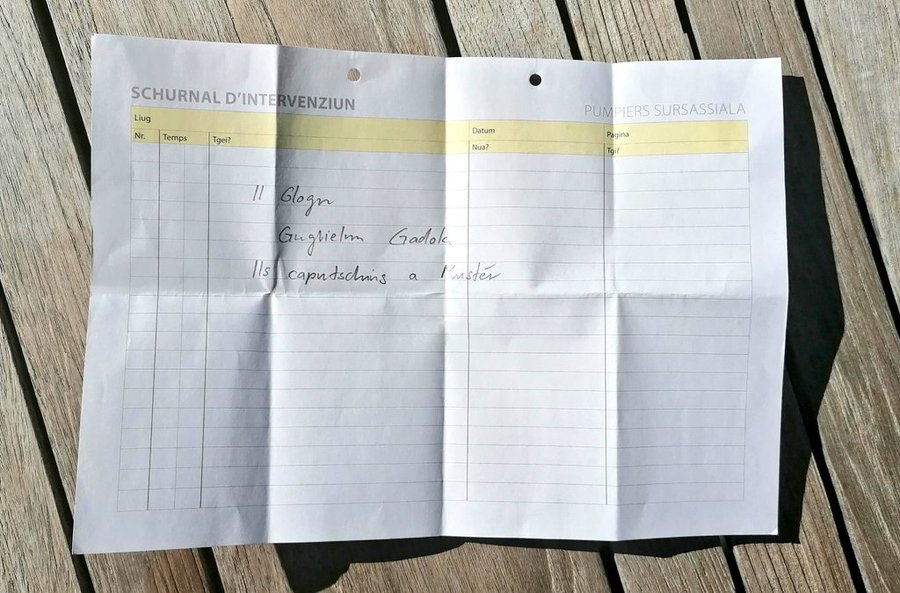 SCHURNAL D'INTERVENZIUN
PUMPIERS SURSASSIALA
Liug
Datum
Pagina
Nr.
Temps
Tgei?
Nua?
Tgi?
Il Glogn
Guglielm Gadola
Ils caputschins a Mustér